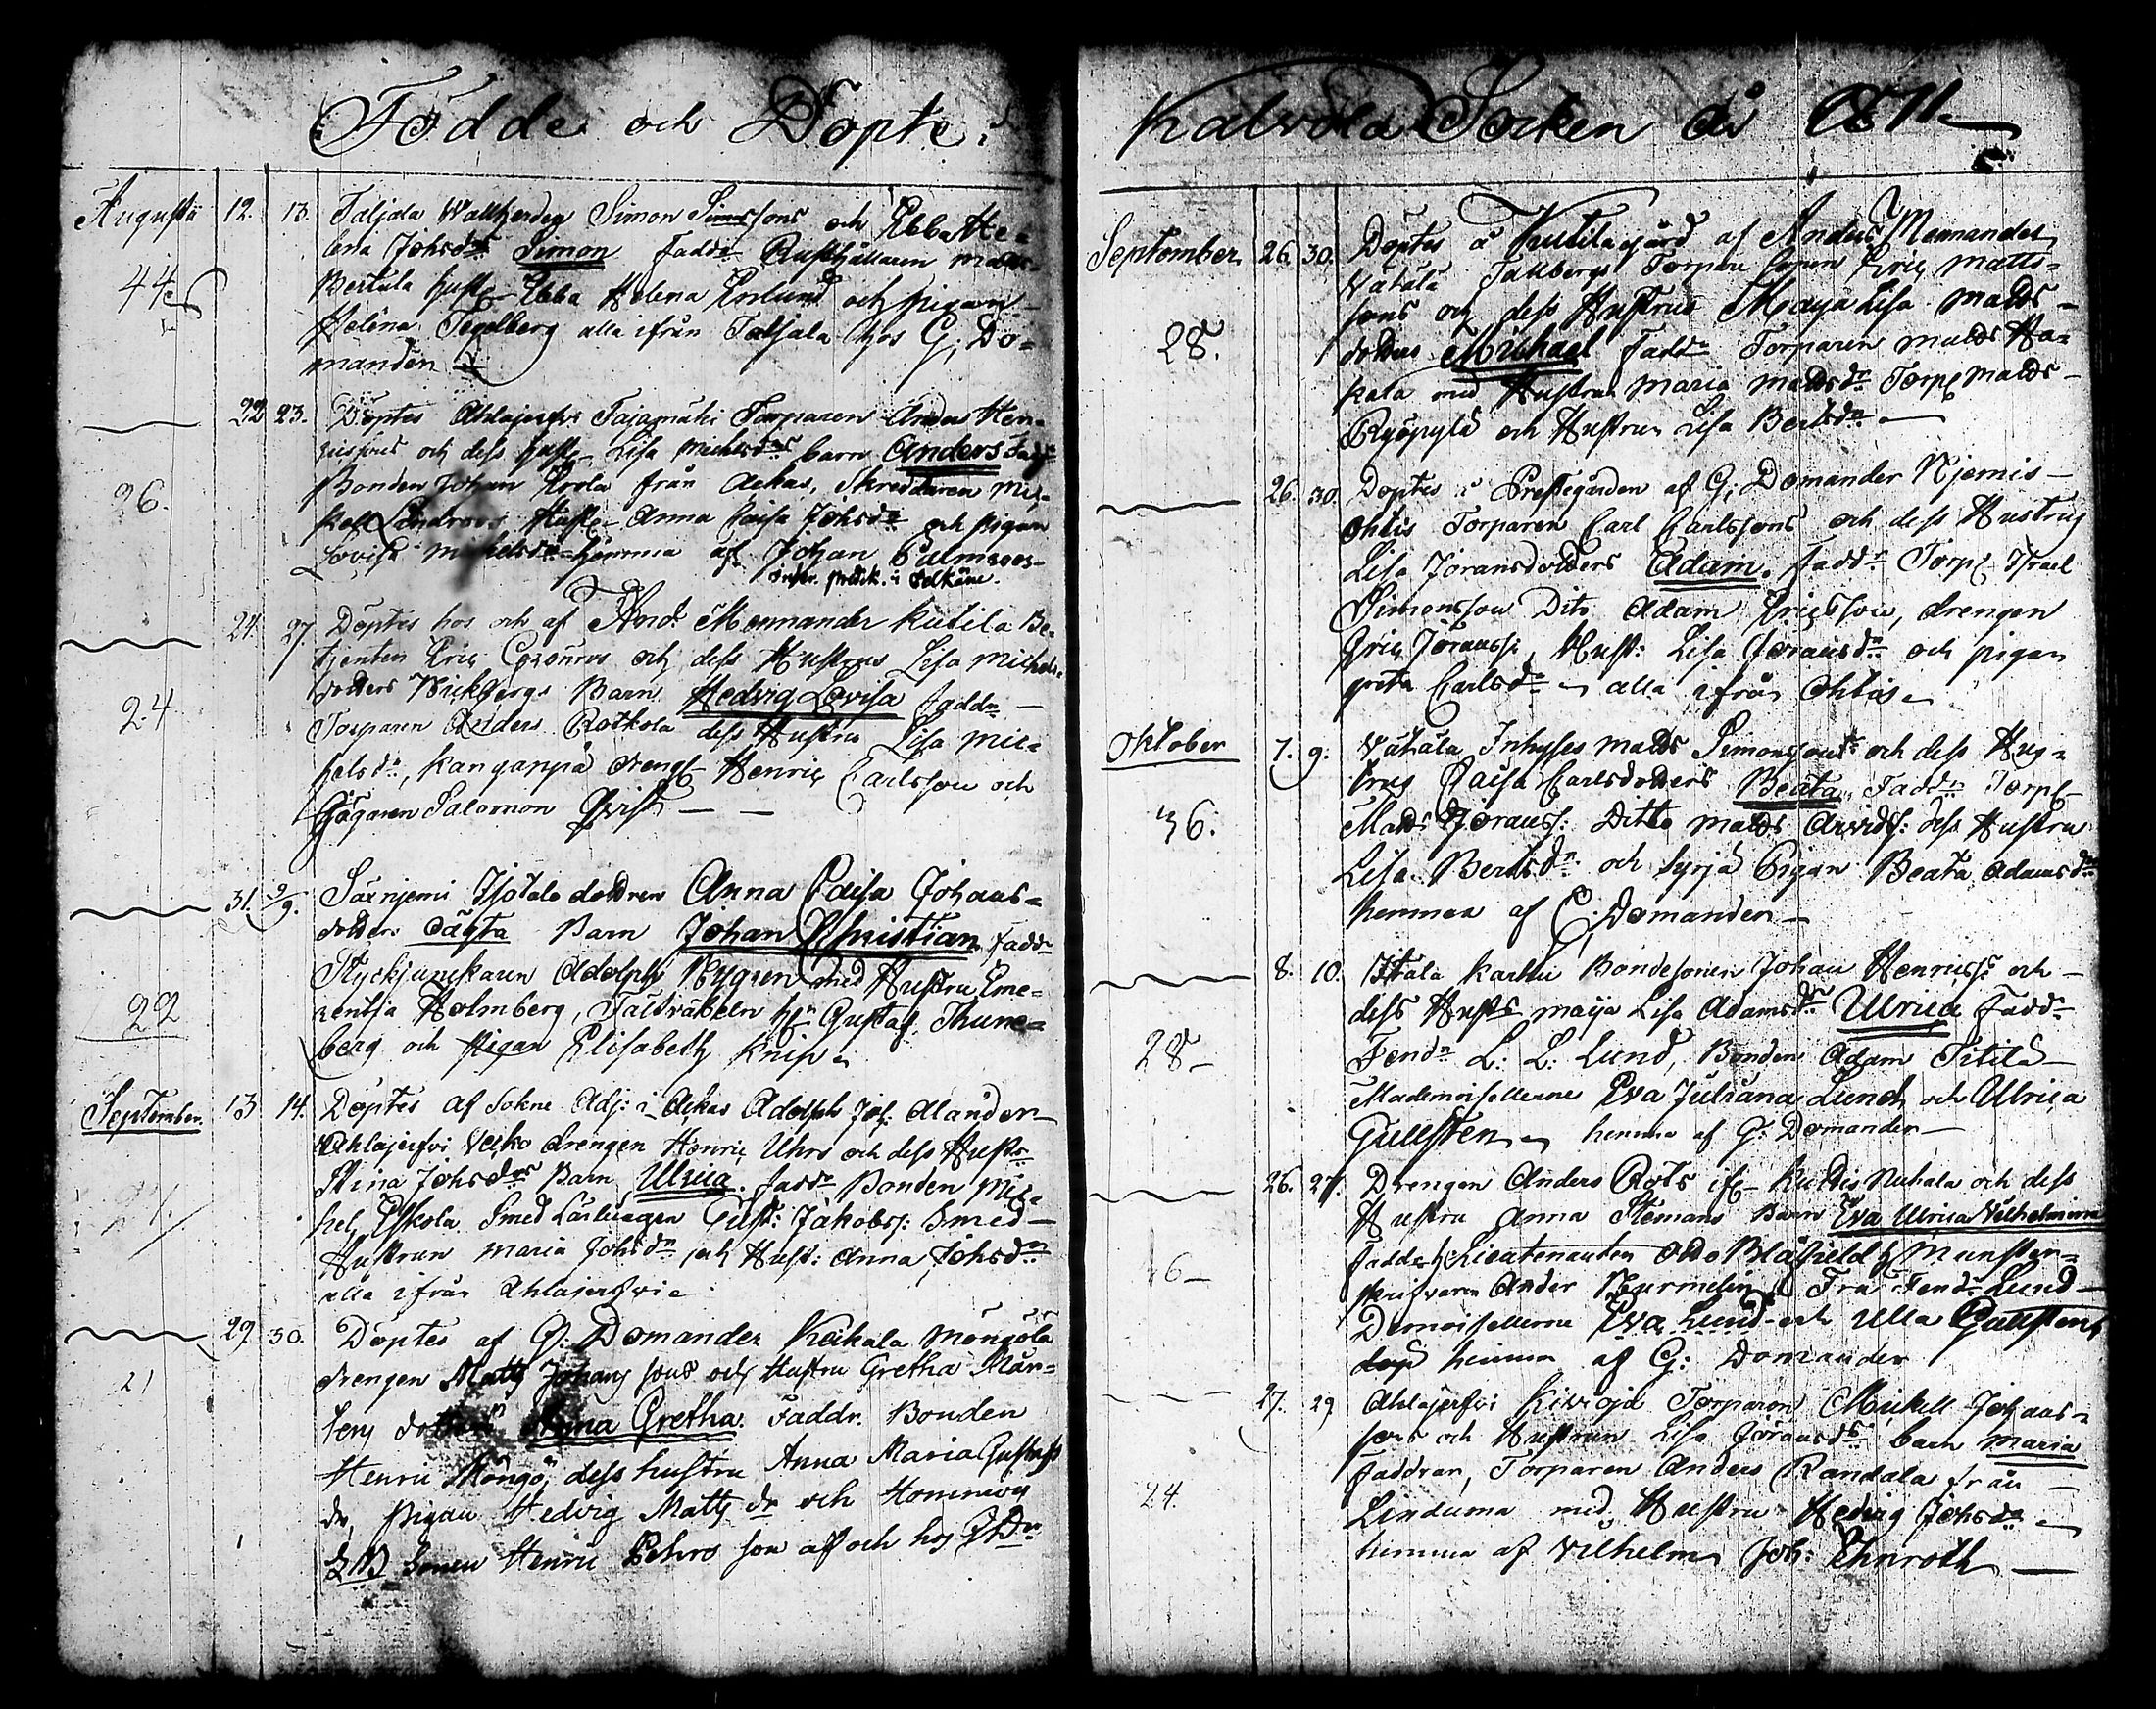 Födde och Döpte i
Augustii 12. 13. Taljala Wallherden Simon Simonssons och Ebba He=
lena Johsdrs Simon Faddr Rusthållaren Matts
44 Bertula hustr Ebba Helena Enlund och pigan
Helena Tegelberg alla ifrån Taljala hos G. Do=
mander
22 23. Döptes Ahlajerfvi Torparen Anders Hen=
ricssons och dess hustr Lisa Michelsdrs barn Anders Faddr
26. Bonden Johan från Ackas, Skreddaren Mic=
kel Lindroos Hustr Anna Caisa Johsdr och pigan
Lovisa Michelsdr hemma af Johan Palmroos
i Sálkäne.
24. 27. Döptes hos och af And: Mennander Kutila Be=
tjenten Eric och dess Hustrus Lisa Michels=
24 dotters Wickbergs Barn Hedvig Lovisa Faddr
Torparen Anders Rotkola dess Hustru Lisa Mic=
helsdr, Kanganpä dreng Henric Carlsson och
Jägaren Salomon Qvist
31. 2/9. Särnjemi Isotalo dottren Anna Caisa Johans=
dotters oägta Barn Johan Christian Faddr
Styckjunkaren Adolph Nygren med Hustru Eme=
22 rentsja Holmberg, Fältväbeln Hr Gustaf Thune=
berg och pigan Elisabeth Knip
September. 13 14. Döptes af Sokne Adj: i Ackas Adolph Joh. Alander
Ahlajerfvi Ucko drengen Henric Uhro och dess Hustr
Stina Johsdrs Barn Ulrica. Faddr Bonden Mic=
hel Eskola Smed Lärlingen Gust: Jakobss: Smed
Hustrun Maria Johsdr och Hust: Anna Johsdr
alla ifrån Ahlajerfvi
29. 30. Döptes af G: Domander Keikala Möngölä
21 drengen Matts Johans sons och Hustru Gretha Mår=
tens dotters Anna Gretha. Faddr. Bonden
Henric Möngö, dess hustru Anna Maria Gustafs
dr, Pigan Hedvig Matts dr och
Henric Pehrs son af och hos G Dr
Kalvola Socken år 1811.
September 26. 30. Döptes å Kutila gård af Anders Mennander
Vätälä Tallbergs Torpare sonen Eric Matts=
28. sons och dess Hustrus Maya Lisa Matts
dotters Michael Faddr Torparen Matts Ha=
kala med Hustrun Maria Mattsdr Torp Matts
Ryöpylä och Hustrun Lisa Bertsdr
26. 30. Döptes i Prestegården af G. Domander Njemis
Ohtis Torparen Carl Carlssons och dess Hustrus
Lisa Joransdotters Adam. Faddr Torp Israel
Simonsson Dito Adam Ericsson, drengen
Eric Joranss. Hust: Lisa Joransdr och pigan
greta Carlsdr alla ifrån Ohtis
Oktober 7. 9. Vätälä Inhyses Matts Simonssons och dess Hus=
trus Caisa Carlsdotters Beata, Faddr Torp
36. Matts Joranss: Ditto Matts Arvids: dess Hustru
Lisa Bertsdr och Syrjä Pigan Beata Adamsdr
hemma af G. Domander
8. 10. Iitala Karttu Bondesonen Johan Henricss: och
dess Hustrs Maija Lisa Adamsdrs Ulrica Faddr
28 Fendr L: L: Lund, Bonden Adam Titilä
Mademoisellerne Eva Juliana Lund och Ulrica
Gullsten hemma af G: Domander
26. 27. Drengen Anders Rots ifr Kuttis Nuhala och dess
Hustru Anna Stemans Barn Eva Ulrica Vilhelmina
Faddr Lieutenanten Otto Blåfield Munster=
skrifvaren Ander Nurmelin Fru Fendr Lund
Demoisellerne Eva Lund och Ulla Gullsten
döp hemma af G: Domander
27. 29 Ahlajerfvi Kiviojä Torparen Mickell Johans=
sons och Hustrun Lisa Joransdrs barn Maria
Faddrar, Torparen Anders Randala från
24. Linduma med Hustru Hedvig Johsdr
hemma af Vilhelm Joh: Ehnroth